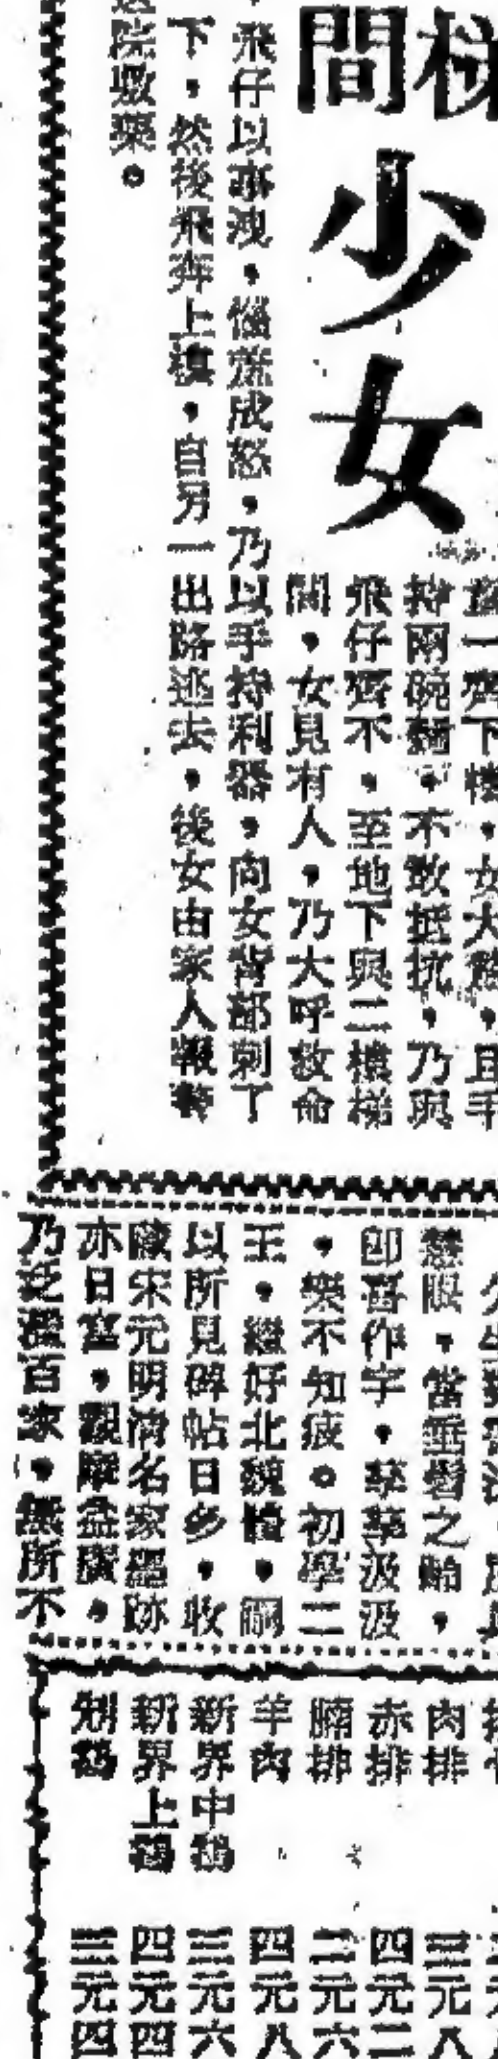 梯
間
少女
一齊下樓，女大驚，且手
持兩碗麵，不敢抵抗，乃與
飛仔齊下，至地下與二樓梯
間，女見有人，乃大呼救命
，飛仔以事洩，惱羞成怒，乃以手持利器，向女背部刺了
下，然後飛奔上樓，自另一出路逃去，後女由家人報警
送院敷藥。
慧眼，當垂髫之齡，
即喜作字，孳孳汲汲
，樂不知疲。初學二
王，繼好北魏體，嗣
以所見碑帖日多，收
藏宋元明清名家墨跡
亦日富，觀摩益廣，
乃泛濫百家，無所不
肉排 三元八
赤排 四元二
腩排 二元六
羊肉 四元八
新界中鷄 三元六
新界上鷄 四元四
鷄 三元四